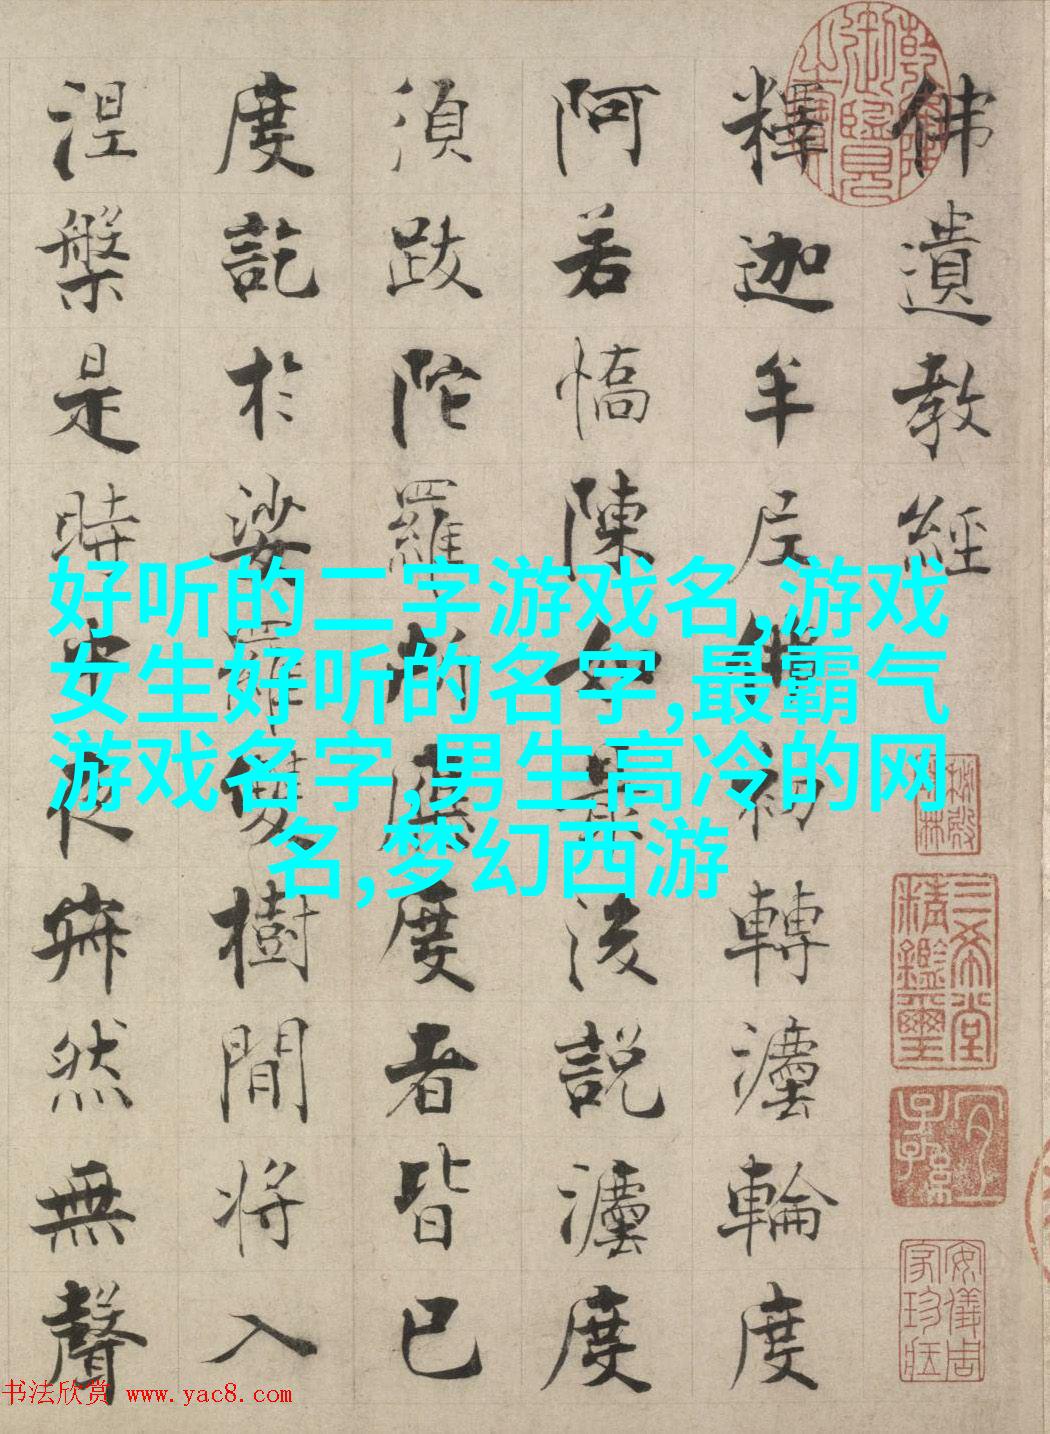 佛遺教經
釋迦牟尼佛初轉灋輪度
阿若憍陳如最後說灋度
須跋陀羅所應度者皆已
度訖於娑羅雙樹間將入
涅槃是時中夜寂然無聲
三希堂精鑑璽
宜子孫
安儀周家珍藏
好听的二字游戏名,游戏
女生好听的名字,最霸气
游戏名字,男生高冷的网
名,梦幻西游
书法欣赏 www.yac8.com